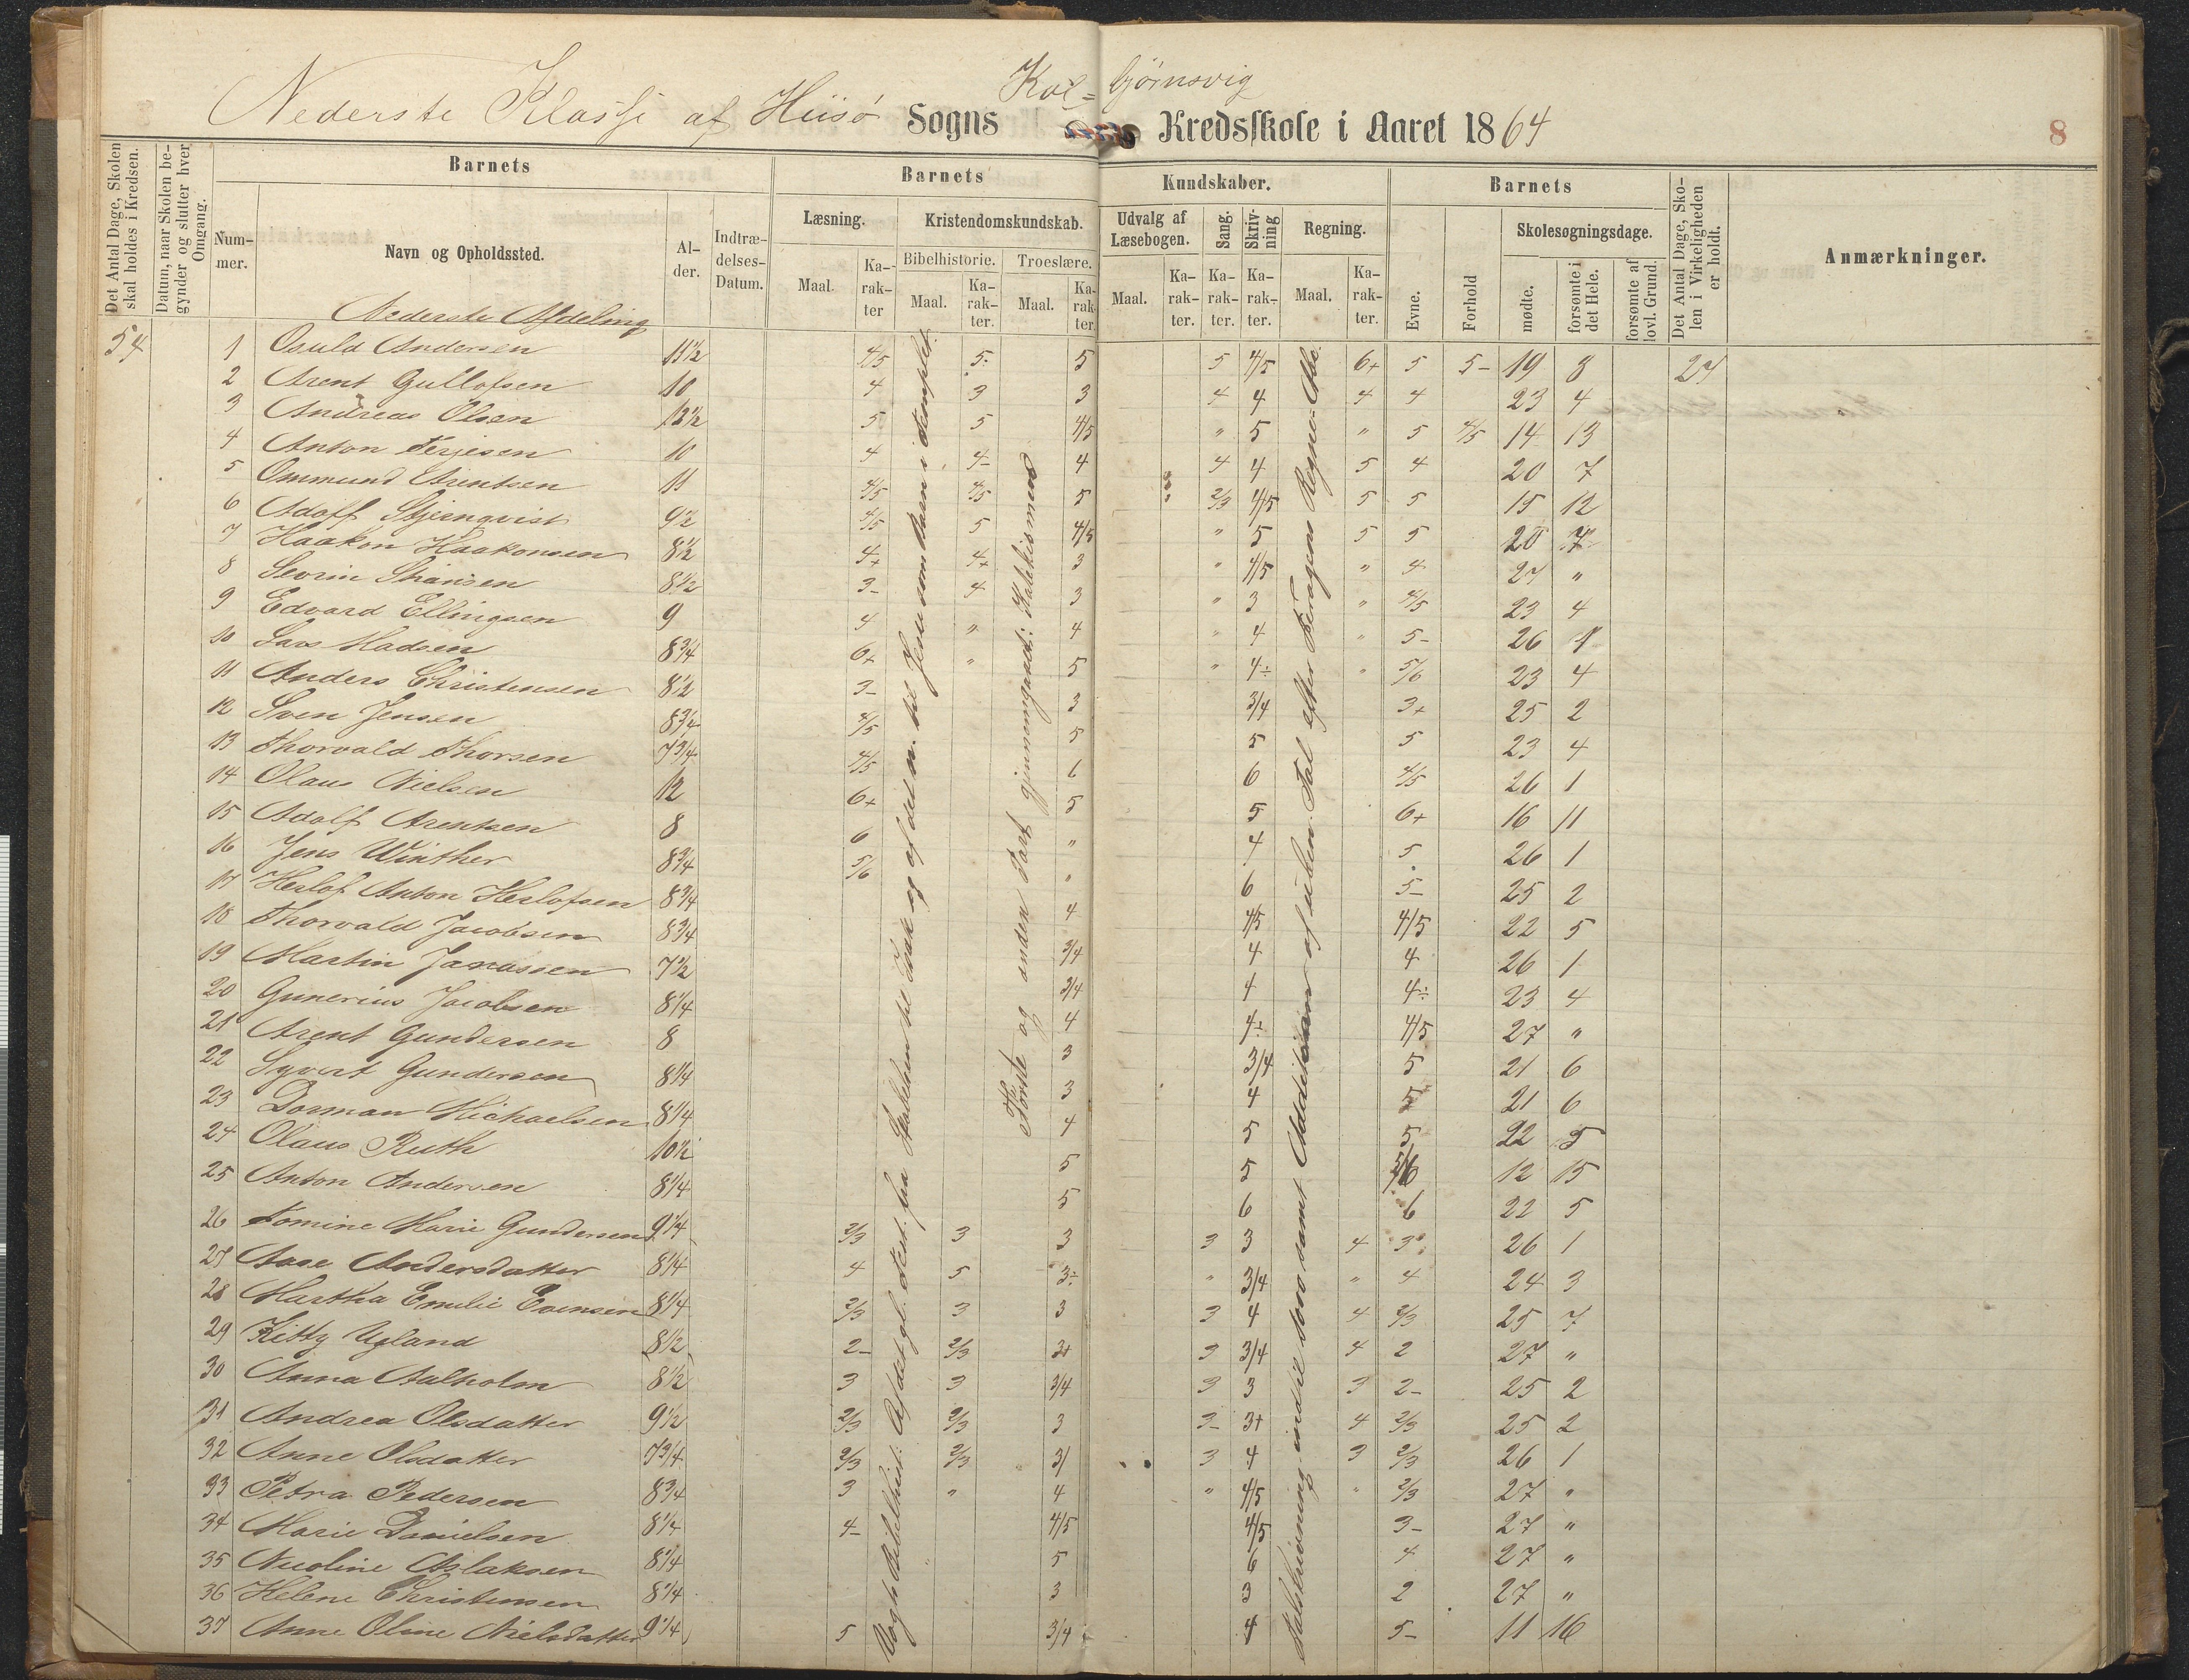 Nederste Klasse af Hiisö Sogns Kol= bjørnsvig Kredsskole i Aaret 1864
8
Det Antal Dage, Skolen skal holdes i Kredsen.
Datum, naar Skolen begynder og slutter hver Omgang.
Barnets
Nummer.
Navn og Opholdssted.
Alder.
Indtrædelses-Datum.
Barnets
Læsning.
Maal.
Karakter
Kristendomskundskab.
Bibelhistorie.
Maal.
Karakter.
Troeslære.
Maal.
Karakter.
Kundskaber.
Udvalg af Læsebogen.
Maal.
Karakter.
Sang.
Karakter.
Skrivning
Karakter.
Regning.
Maal.
Karakter.
Barnets
Evne.
Forhold
Skolesøgningsdage.
mødte.
forsømte i det Hele.
forsømte af lovl. Grund.
Det Antal Dage, Skolen i Virkeligheden er holdt.
Anmærkninger.
Nederste Afdeling
54 1 Osuld Andersen 11½ 4/5 5. 5 5 4/5 6+ 5 5- 19 8 27
2 Arent Gullofsen 10 4 3 3 4 4 4 4 23 4
3 Andreas Olsen 13½ 5 5 4/5 " 5 " 5 4/5 14 13
4 Anton Terjesen 10 4 4- 4 4 4 5 4 20 7
5 Ommund Arentsen 11 4/5 4/5 5 2/3 4/5 5 5 15 12
6 Adolf Stjernqvist 9½ 4/5 5 4/5 " 5 5 5 20 7
7 Haakon Haakonsen 8½ 4+ 4+ 3 " 4/5 " 4 27 "
8 Sevrin 8½ 3- 4 3 " 3 " 4/5 23 4
9 Edvard Ellingsen 9 4 " 4 " 4 " 5- 26 1
10 Lars Madsen 8¾ 6+ " 5 " 4÷ " 5/6 23 4
11 Anders Christensen 8½ 3- 3 3/4 3+ 25 2
12 Sven Jensen 8¾ 4/5 5 5 5 23 4
13 Thorvald Thorsen 7¾ 4/5 6 6 4/5 26 1
14 Olaus Nielsen 12 6+ 5 5 6+ 16 11
15 Adolf Arentsen 8 6 " 4 5 26 1
16 Jens Winther 8¾ 5/6 " 6 5- 25 2
17 Herlof Anton Herlofsen 8¾ 4 4/5 4/5 22 5
18 Thorvald Jacobsen 8¾ 3/4 4 4 26 1
19 Martin Janassen 7½ 3/4 4 4÷ 23 4
20 Gunerius Jacobsen 8¼ 4 4÷ 4/5 27 "
21 Arent Gundersen 8 3 3/4 5 21 6
22 Syvert Gundersen 8¼ 3 4 5 21 6
23 Dorman Michaelsen 8¼ 4 5 5 22 5
24 Olaus Ruth 10½ 5 5 5/6 12 15
25 Anton Andersen 8¼ 5 6 6 22 5
26 Tomine Marie Gundersen 9¼ 2/3 3 3 3 3 4 3 26 1
27 Aase Andersdatter 8¼ 4 5 3÷ " 3/4 " 4 24 3
28 Martha Emilie Evensen 8¼ 2/3 3 3 3 4 4 2/3 25 7
29 Kitty Ugland 8½ 2- 2/3 3+ 3 3/4 4 2 27 "
30 Anna Aalholm 8½ 3 3 3/4 3 3 3 2- 25 2
31 Andrea Olsdatter 9½ 2/3 2/3 3 3- 3+ 4 2/3 25 2
32 Anne Olsdatter 7¾ 2/3 2/3 3/ 3 4 3 2/3 26 1
33 Petra Pedersen 8¾ 3 " 4 " 4/5 " 2/3 27 "
34 Marie Danielsen 8¼ 4- 4/5 4/5 3- 27 "
35 Nicoline Aslaksen 8¼ 5 6 4 27 "
36 Helene Christensen 8¼ 3 3 2 27 "
37 Anne Oline Nielsdatter 9¼ 5 3/4 4 5- 11 16
Vogts Bibelhist. Af det gl. Test. fra Skabelsen til Isak og af det n. til Jesus som Barn i Templet.
Første og anden Part gjennemgaaet: Katekismens
Talskrivning indtil 1000 samt Addition af uben. Tal efter Bragens Regne-Abc.